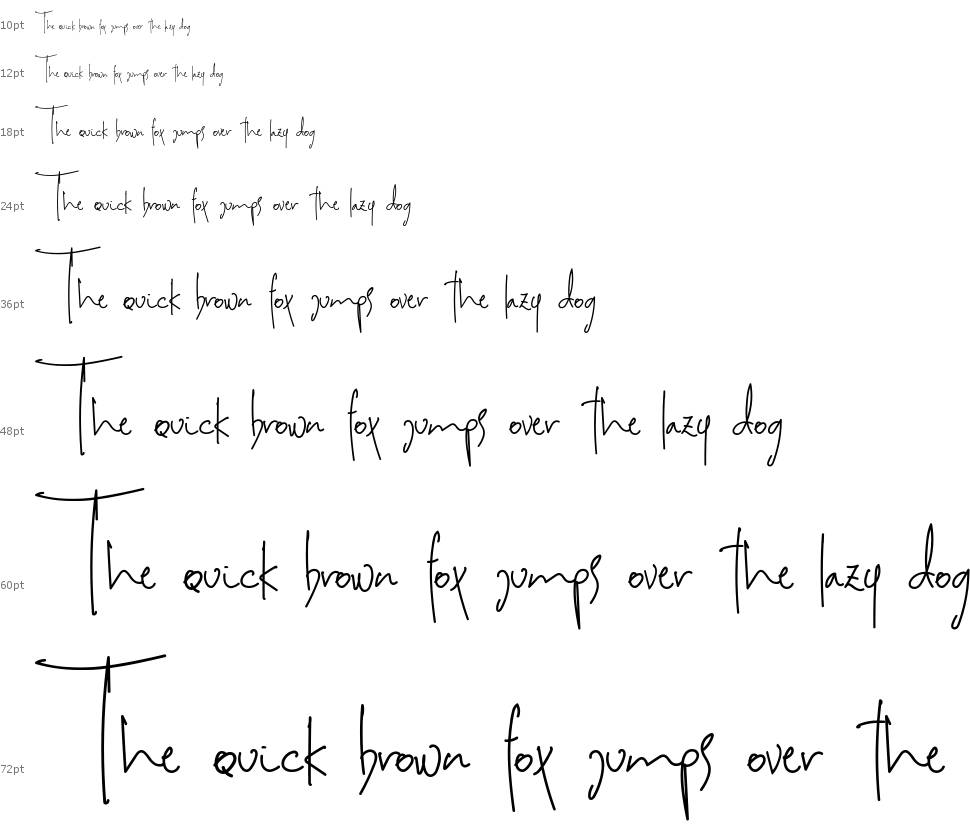 10pt The quick brown fox jumps over the lazy dog
12pt The quick brown fox jumps over the lazy dog
18pt The quick brown fox jumps over the lazy dog
24pt The quick brown fox jumps over the lazy dog
36pt The quick brown fox jumps over the lazy dog
48pt The quick brown fox jumps over the lazy dog
60pt The quick brown fox jumps over the lazy dog
72pt The quick brown fox jumps over the